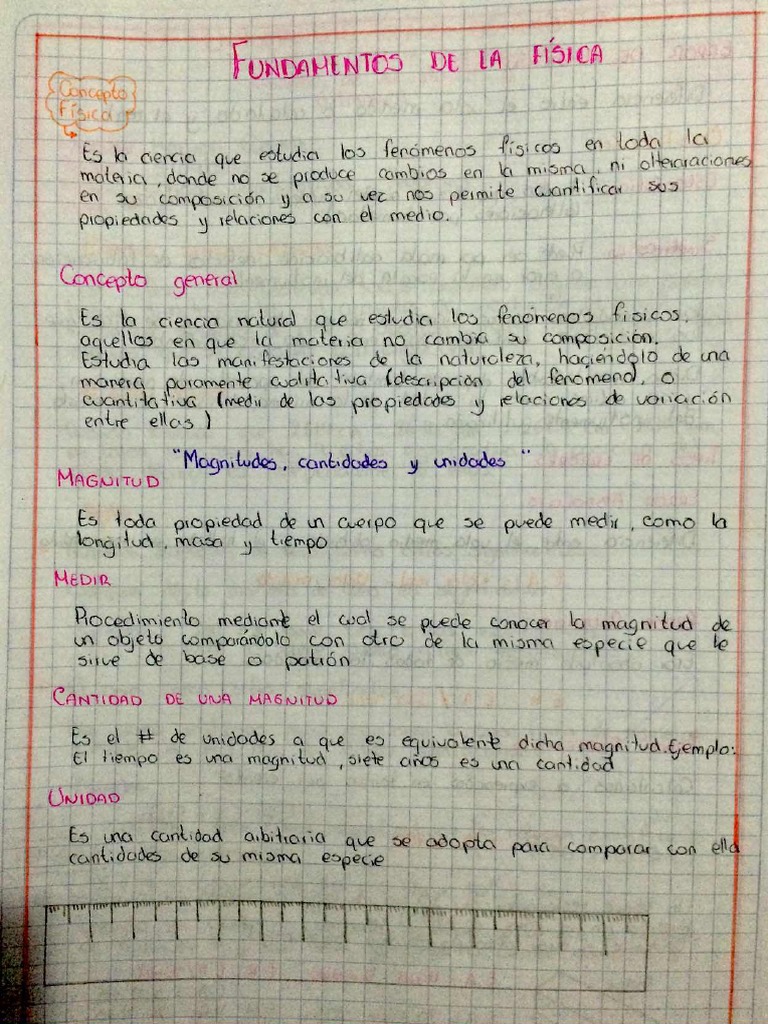 FUNDAMENTOS DE LA FÍSICA
Concepto
Física
Es la ciencia que estudia los fenómenos físicos en toda la
materia, donde no se produce cambios en la misma, ni alteraciones
en su composición y a su vez nos permite cuantificar sus
propiedades y relaciones con el medio.
Concepto general
Es la ciencia natural que estudia los fenómenos físicos.
aquellos en que la materia no cambia su composición.
Estudia las manifestaciones de la naturaleza, haciendolo de una
manera puramente cualitativa (descripción del fenómeno), o
cuantitativa (medir de las propiedades y relaciones de variación
entre ellas)
"Magnitudes, cantidades y unidades"
MAGNITUD
Es toda propiedad de un cuerpo que se puede medir, como la
longitud, masa y tiempo
MEDIR
Procedimiento mediante el cual se puede conocer la magnitud de
un objeto comparándolo con otro de la misma especie que le
sirve de base o patrón
CANTIDAD DE UNA MAGNITUD
Es el # de unidades a que es equivalente dicha magnitud. Ejemplo:
El tiempo es una magnitud, siete años es una cantidad
UNIDAD
Es una cantidad arbitraria que se adopta para comparar con ella
cantidades de su misma especie